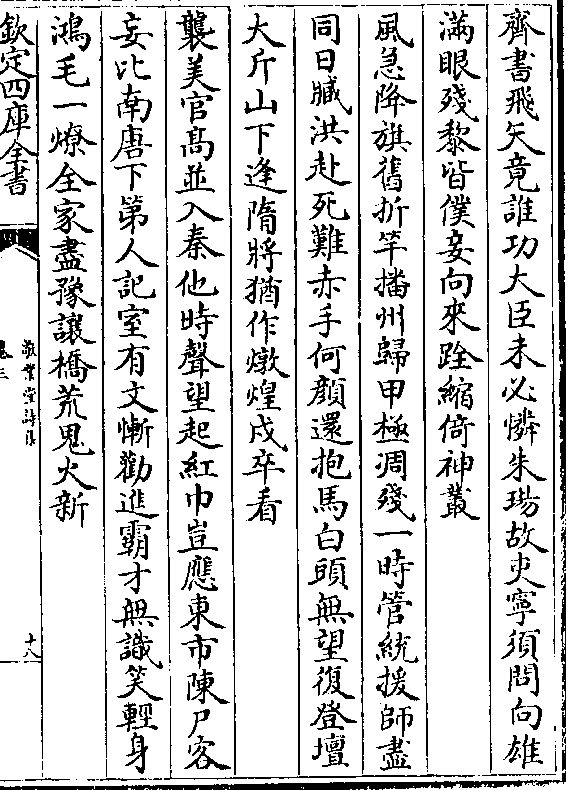 齊書飛矢竟誰功大臣未必憐朱瑒故吏寧須問向雄
滿眼殘黎皆僕妾向來跧縮倚神叢
風急降旗舊折竿播州歸甲極凋殘一時管統援師盡
同日臧洪赴死難赤手何顔還抱馬白頭無望復登壇
大斤山下逢隋將猶作燉煌戍卒看
襲美官髙並入秦他時聲望起紅巾豈應東市陳尸客
妄比南唐下第人記室有文慚勸進霸才無識笑輕身
鴻毛一燎全家盡豫讓橋荒鬼火新
欽定四庫全書
敬業堂詩集
卷三
十八